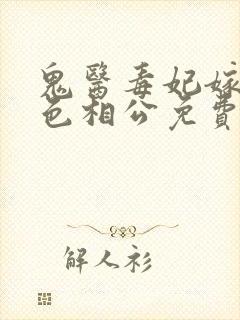 鬼醫毒妃嫁
色相公免費
解人衫